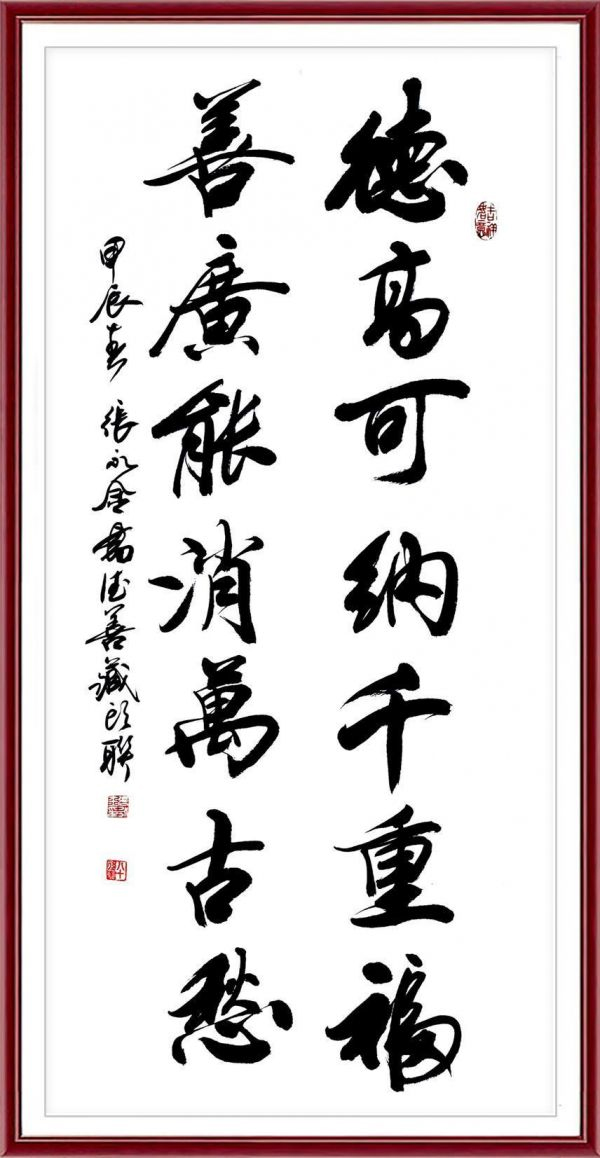 德高可纳千重福
善廣能消萬古愁
甲辰春 張永金書德善藏頭聯